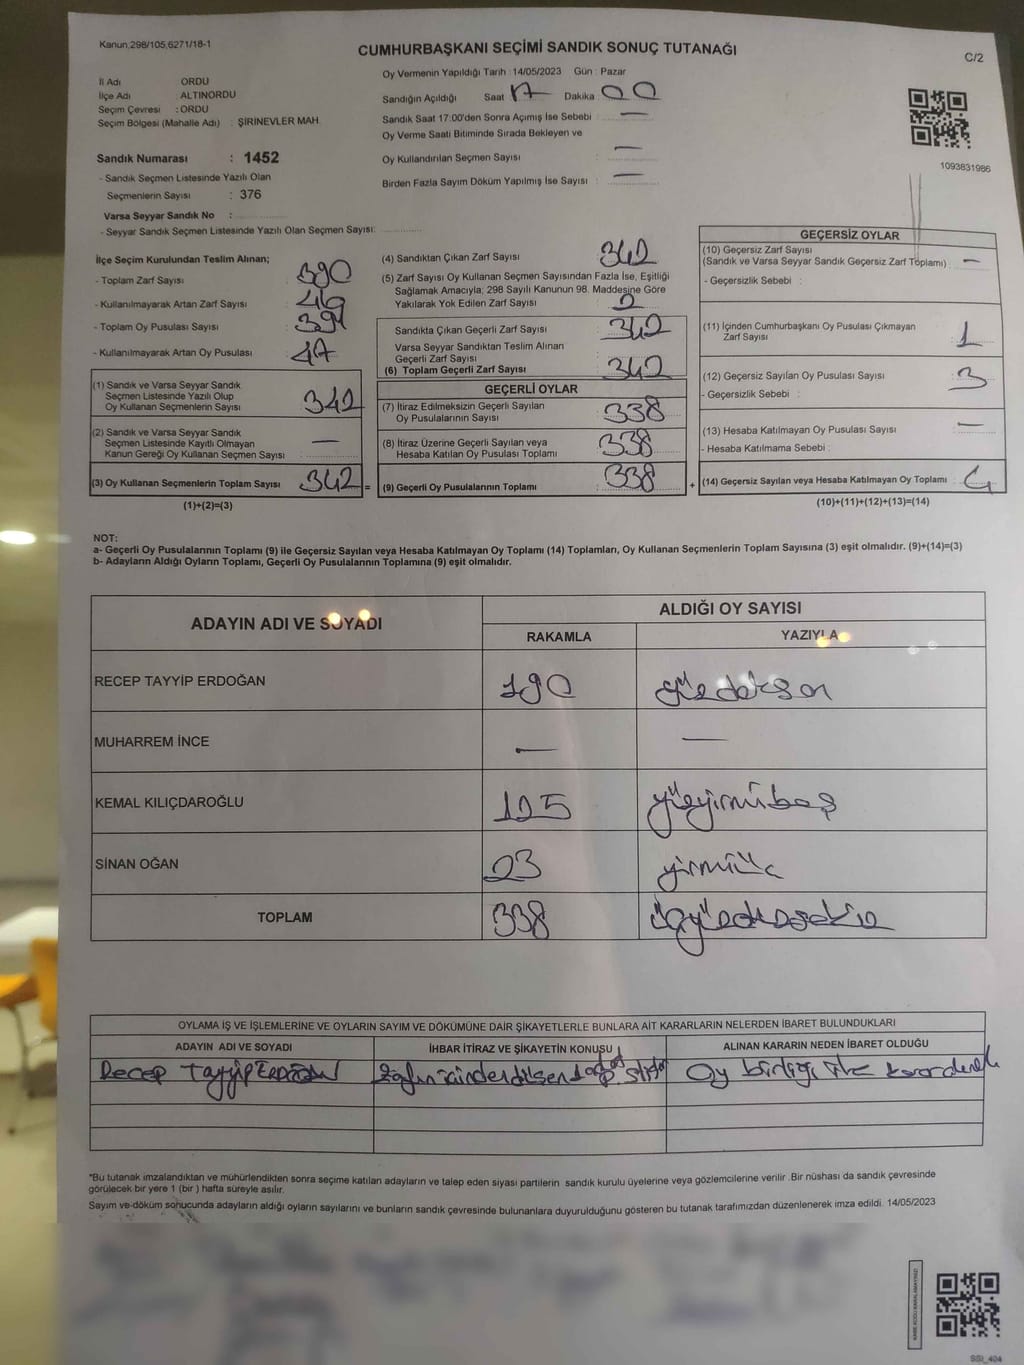 Kanun,298/105,6271/18-1
CUMHURBAŞKANI SEÇİMİ SANDIK SONUÇ TUTANAĞI
C/2
İl Adı ORDU
İlçe Adı : ALTINORDU
Seçim Çevresi : ORDU
Seçim Bölgesi (Mahalle Adı) : ŞİRİNEVLER MAH.
Sandık Numarası : 1452
- Sandık Seçmen Listesinde Yazılı Olan
Seçmenlerin Sayısı : 376
Varsa Seyyar Sandık No :
- Seyyar Sandık Seçmen Listesinde Yazılı Olan Seçmen Sayısı:
Oy Vermenin Yapıldığı Tarih : 14/05/2023 Gün : Pazar
Sandığın Açıldığı Saat 17 Dakika 00
Sandık Saat 17:00'den Sonra Açımış İse Sebebi : —
Oy Verme Saati Bitiminde Sırada Bekleyen ve
Oy Kullandırılan Seçmen Sayısı : —
Birden Fazla Sayım Döküm Yapılmış İse Sayısı : —
1093831986
İlçe Seçim Kurulundan Teslim Alınan;
- Toplam Zarf Sayısı : 390
- Kullanılmayarak Artan Zarf Sayısı :
- Toplam Oy Pusulası Sayısı :
- Kullanılmayarak Artan Oy Pusulası : 47
(1) Sandık ve Varsa Seyyar Sandık
Seçmen Listesinde Yazılı Olup
Oy Kullanan Seçmenlerin Sayısı : 342
(2) Sandık ve Varsa Seyyar Sandık
Seçmen Listesinde Kayıtlı Olmayan
Kanun Gereği Oy Kullanan Seçmen Sayısı : —
(3) Oy Kullanan Seçmenlerin Toplam Sayısı : 342 =
(1)+(2)=(3)
(4) Sandıktan Çıkan Zarf Sayısı : 342
(5) Zarf Sayısı Oy Kullanan Seçmen Sayısından Fazla İse, Eşitliği
Sağlamak Amacıyla; 298 Sayılı Kanunun 98. Maddesine Göre
Yakılarak Yok Edilen Zarf Sayısı :
Sandıkta Çıkan Geçerli Zarf Sayısı : 342
Varsa Seyyar Sandıktan Teslim Alınan
Geçerli Zarf Sayısı :
(6) Toplam Geçerli Zarf Sayısı : 342
GEÇERLİ OYLAR
(7) İtiraz Edilmeksizin Geçerli Sayılan
Oy Pusulalarının Sayısı : 338
(8) İtiraz Üzerine Geçerli Sayılan veya
Hesaba Katılan Oy Pusulası Toplamı : 338
(9) Geçerli Oy Pusulalarının Toplamı : 338 +
GEÇERSİZ OYLAR
(10) Geçersiz Zarf Sayısı
(Sandık ve Varsa Seyyar Sandık Geçersiz Zarf Toplamı) : —
- Geçersizlik Sebebi :
(11) İçinden Cumhurbaşkanı Oy Pusulası Çıkmayan
Zarf Sayısı : 1
(12) Geçersiz Sayılan Oy Pusulası Sayısı : 3
- Geçersizlik Sebebi :
(13) Hesaba Katılmayan Oy Pusulası Sayısı : —
- Hesaba Katılmama Sebebi :
(14) Geçersiz Sayılan veya Hesaba Katılmayan Oy Toplamı : 4
(10)+(11)+(12)+(13)=(14)
NOT:
a- Geçerli Oy Pusulalarının Toplamı (9) ile Geçersiz Sayılan veya Hesaba Katılmayan Oy Toplamı (14) Toplamları, Oy Kullanan Seçmenlerin Toplam Sayısına (3) eşit olmalıdır. (9)+(14)=(3)
b- Adayların Aldığı Oyların Toplamı, Geçerli Oy Pusulalarının Toplamına (9) eşit olmalıdır.
ADAYIN ADI VE SOYADI ALDIĞI OY SAYISI
RAKAMLA YAZIYLA
RECEP TAYYİP ERDOĞAN 190 yüzdoksan
MUHARREM İNCE — —
KEMAL KILIÇDAROĞLU 125 yüzyirmibeş
SİNAN OĞAN 23 yirmiüç
TOPLAM 338
OYLAMA İŞ VE İŞLEMLERİNE VE OYLARIN SAYIM VE DÖKÜMÜNE DAİR ŞİKAYETLERLE BUNLARA AİT KARARLARIN NELERDEN İBARET BULUNDUKLARI
ADAYIN ADI VE SOYADI İHBAR İTİRAZ VE ŞİKAYETİN KONUSU ALINAN KARARIN NEDEN İBARET OLDUĞU
Recep Tayyip Erdoğan Oy birliği ile
*Bu tutanak imzalandıktan ve mühürlendikten sonra seçime katılan adayların ve talep eden siyasi partilerin sandık kurulu üyelerine veya gözlemcilerine verilir. Bir nüshası da sandık çevresinde
görülecek bir yere 1 (bir ) hafta süreyle asılır.
Sayım ve döküm sonucunda adayların aldığı oyların sayılarını ve bunların sandık çevresinde bulunanlara duyurulduğunu gösteren bu tutanak tarafımızdan düzenlenerek imza edildi. 14/05/2023